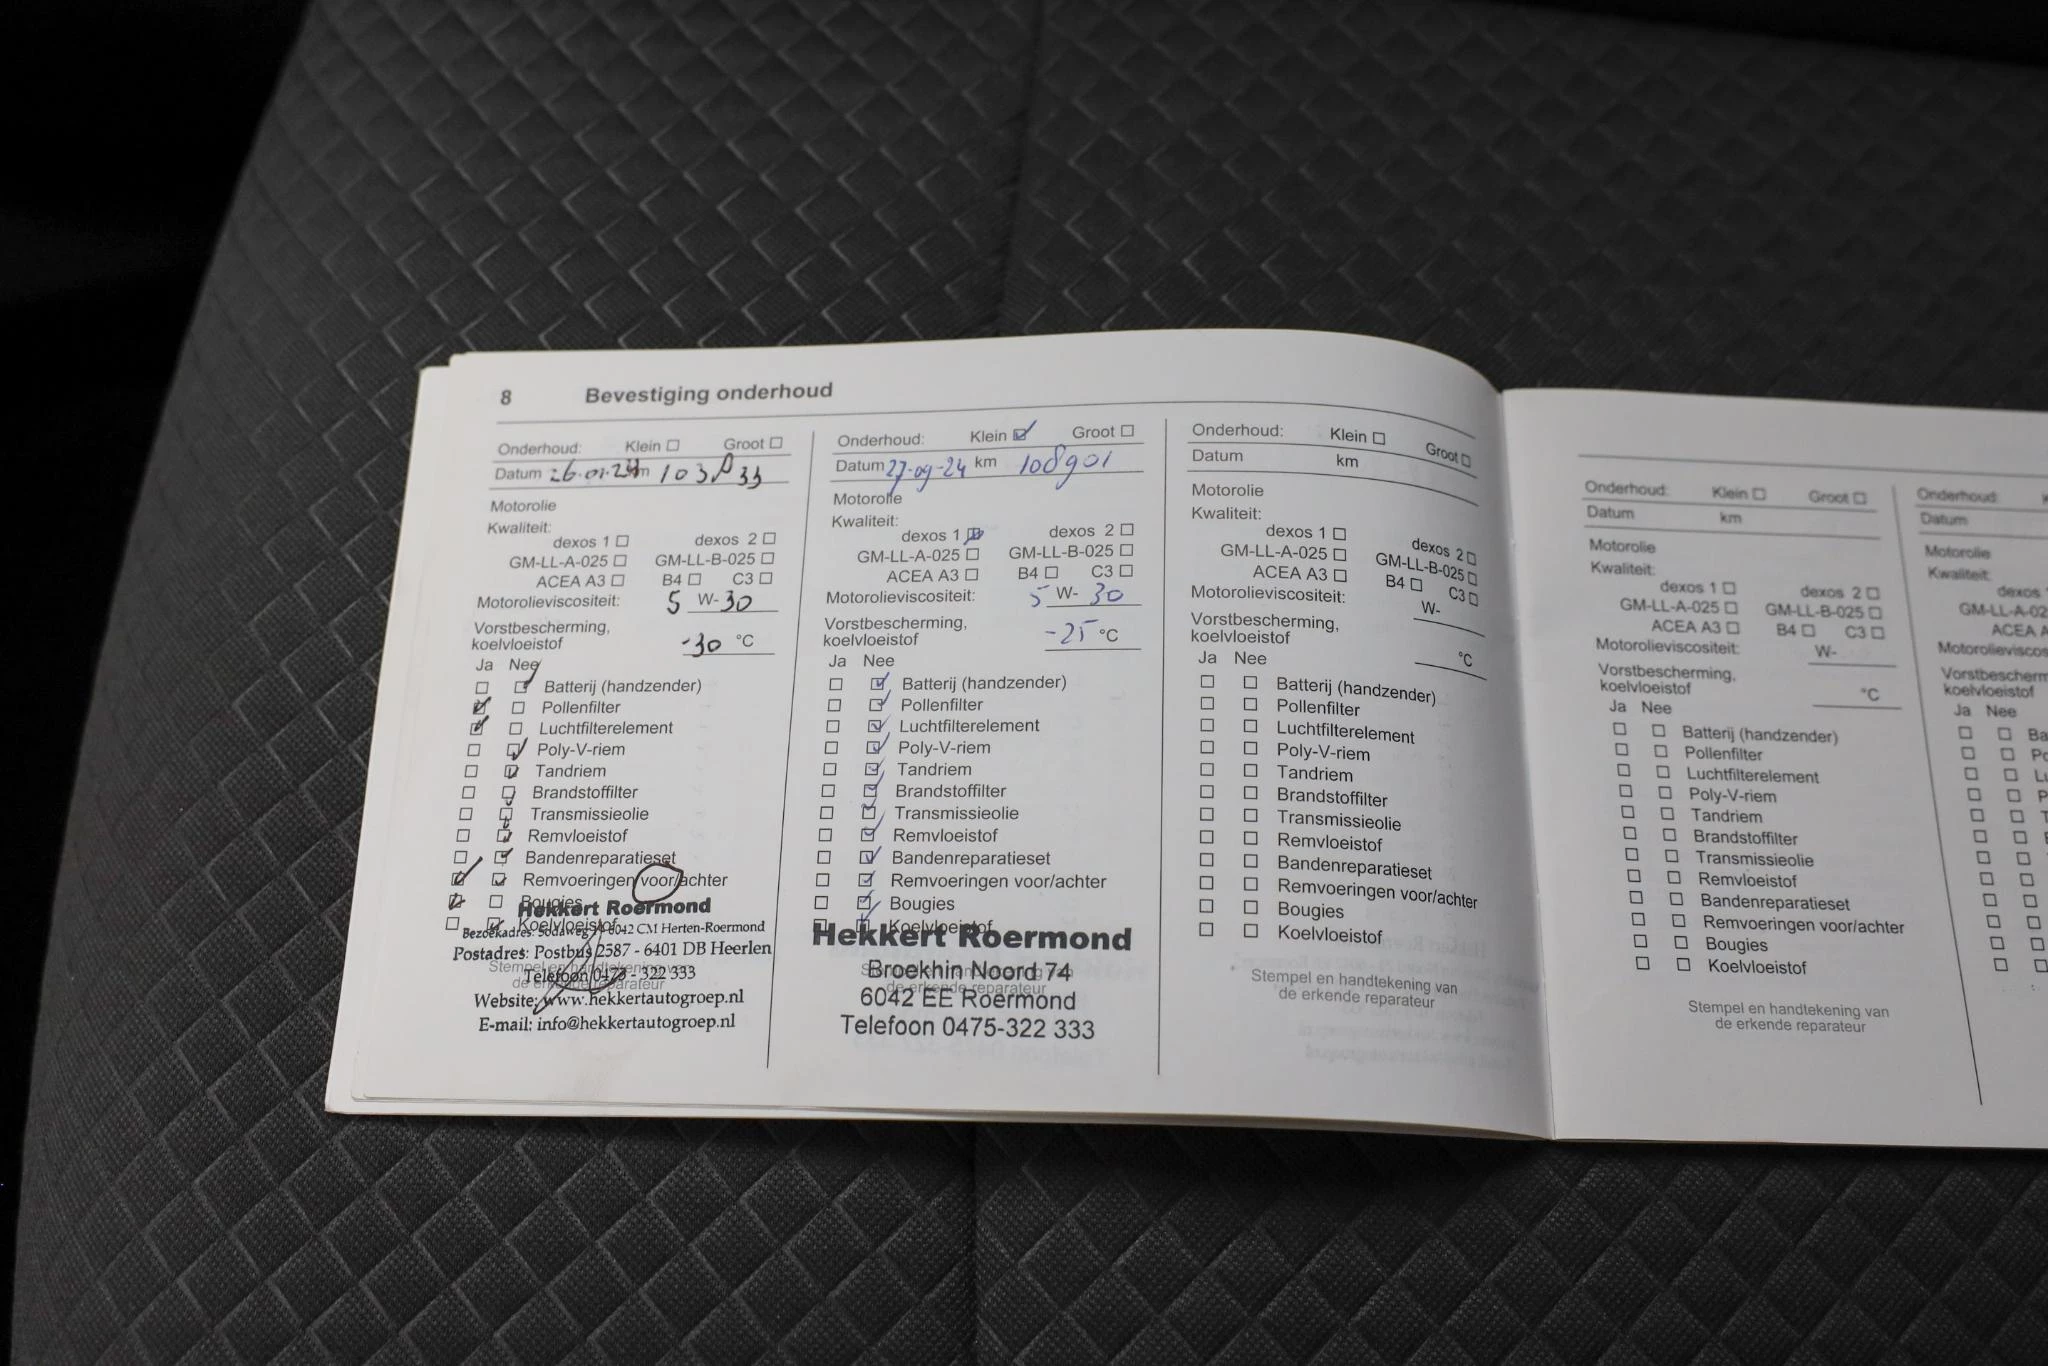 8 Bevestiging onderhoud
Onderhoud: Klein Groot
Datum 26-01-24 km 103
Motorolie
Kwaliteit:
dexos 1 dexos 2
GM-LL-A-025 GM-LL-B-025
ACEA A3 B4 C3
Motorolieviscositeit: 5 W-30
Vorstbescherming,
koelvloeistof -30 °C
Ja Nee
Batterij (handzender)
Pollenfilter
Luchtfilterelement
Poly-V-riem
Tandriem
Brandstoffilter
Transmissieolie
Remvloeistof
Bandenreparatieset
Remvoeringen voor/achter
Bougies
Koelvloeistof
Stempel en handtekening van
de erkende reparateur
Hekkert Roermond
Bezoekadres: Sodaweg 6042 CM Herten-Roermond
Postadres: Postbus 2587 - 6401 DB Heerlen
Telefoon 0475 - 322 333
Website: www.hekkertautogroep.nl
E-mail: info@hekkertautogroep.nl
Onderhoud: Klein Groot
Datum 27-09-24 km 108901
Motorolie
Kwaliteit:
dexos 1 dexos 2
GM-LL-A-025 GM-LL-B-025
ACEA A3 B4 C3
Motorolieviscositeit: 5 W- 30
Vorstbescherming,
koelvloeistof -25 °C
Ja Nee
Batterij (handzender)
Pollenfilter
Luchtfilterelement
Poly-V-riem
Tandriem
Brandstoffilter
Transmissieolie
Remvloeistof
Bandenreparatieset
Remvoeringen voor/achter
Bougies
Koelvloeistof
Stempel en handtekening van
de erkende reparateur
Hekkert Roermond
Broekhin Noord 74
6042 EE Roermond
Telefoon 0475-322 333
Onderhoud: Klein Groot
Datum km
Motorolie
Kwaliteit:
dexos 1 dexos 2
GM-LL-A-025 GM-LL-B-025
ACEA A3 B4 C3
Motorolieviscositeit: W-
Vorstbescherming,
koelvloeistof °C
Ja Nee
Batterij (handzender)
Pollenfilter
Luchtfilterelement
Poly-V-riem
Tandriem
Brandstoffilter
Transmissieolie
Remvloeistof
Bandenreparatieset
Remvoeringen voor/achter
Bougies
Koelvloeistof
Stempel en handtekening van
de erkende reparateur
Onderhoud: Klein Groot
Datum km
Motorolie
Kwaliteit:
dexos 1 dexos 2
GM-LL-A-025 GM-LL-B-025
ACEA A3 B4 C3
Motorolieviscositeit: W-
Vorstbescherming,
koelvloeistof °C
Ja Nee
Batterij (handzender)
Pollenfilter
Luchtfilterelement
Poly-V-riem
Tandriem
Brandstoffilter
Transmissieolie
Remvloeistof
Bandenreparatieset
Remvoeringen voor/achter
Bougies
Koelvloeistof
Stempel en handtekening van
de erkende reparateur
Onderhoud:
Datum
Motorolie
Kwaliteit:
dexos
GM-LL-A-02
ACEA A
Motorolieviscos
Vorstbescherm
koelvloeistof
Ja Nee
Ba